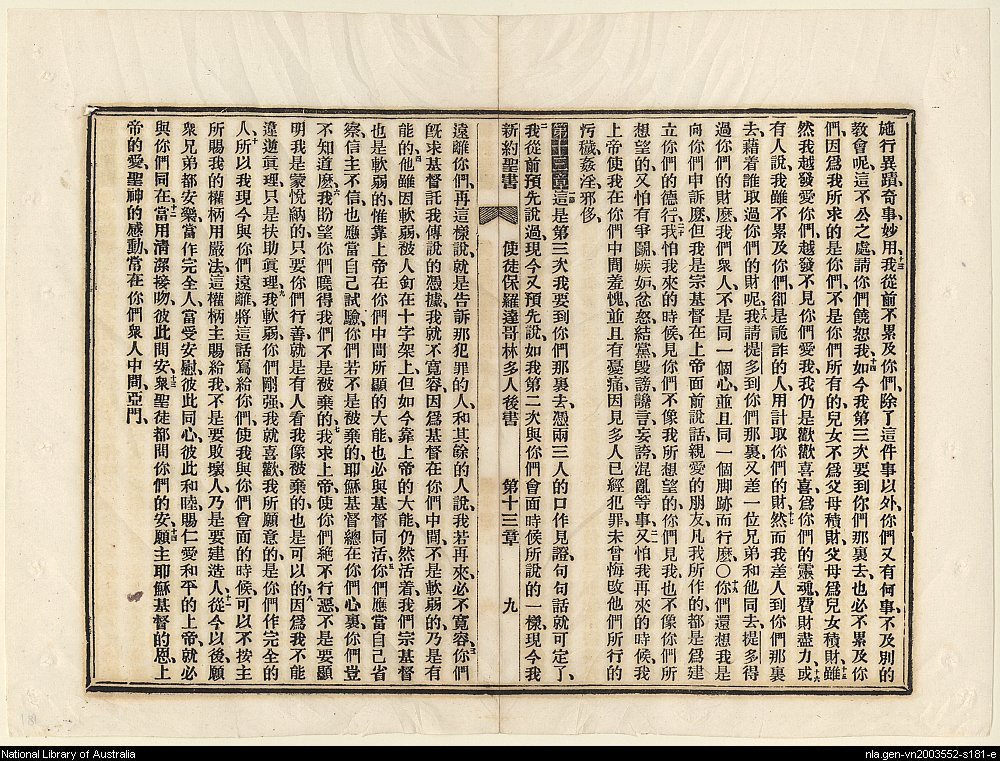 施行異蹟奇事妙用、十三我從前不累及你們、除了這件事以外、你們又有何事、不及別的
教會呢、這不公之處、請你們饒恕我、十四如今我第三次要到你們那裏去、也必不累及你
們、因爲我所求的是你們、不是你們所有的、兒女不爲父母積財、父母爲兒女積財、十五雖
然我越發愛你們、你們越發不見你們愛我、我仍是歡歡喜喜、爲你們的靈魂、費財盡力、十六或
有人說、我雖不累及你們、卻是詭詐的人、用計取你們的財、十七然而我差人到你們那裏
去、藉着誰取過你們的財呢、十八我請提多到你們那裏、又差一位兄弟和他同去、提多得
過你們的財麼、我們衆人、不是同一個心、並且同一個脚跡而行麼、○十九你們還想我是
向你們申訴麼、但我是宗基督在上帝面前說話、親愛的朋友、凡我所作的、都是爲建
立你們的德行、二十我怕我來的時候、見你們不像我所想望的、你們見我、也不像你們所
想望的、又怕有爭鬬、嫉妒、忿怒、結黨、毀謗、讒言、妄誇、混亂等事、二一又怕我再來的時候、我
上帝使我在你們中間羞愧、並且有憂痛、因見多人已經犯罪、未曾悔改他們所行的
污穢、姦淫、邪侈、
第十三章 一這是第三次我要到你們那裏去、憑兩三人的口作見證、句句話就可定了、
二我從前預先說過、現今又預先說、如我第二次與你們會面時候所說的一樣、現今我
新約聖書 使徒保羅達哥林多人後書 第十三章 九
遠離你們、再這樣說、就是告訴那犯罪的人、和其餘的人說、我若再來、必不寬容、三你們
旣求基督託我傳說的憑據、我就不寬容、因爲基督在你們中間、不是軟弱的、乃是有
能的、四他雖因軟弱被人釘在十字架上、但如今靠上帝的大能、仍然活着、我們宗基督
也是軟弱的、惟靠上帝在你們中間所顯的大能、也必與基督同活、五你們應當自己省
察、信主不信、也應當自己試驗、你們若不是被棄的、耶穌基督總在你們心裏、你們豈
不知道麼、六我盼望你們曉得我們不是被棄的、七我求上帝使你們絕不行惡、不是要顯
明我是蒙悅納的、只要你們行善、就是有人看我像被棄的也是可以的、八因爲我不能
違逆眞理、只是扶助眞理、九我軟弱、你們剛强、我就喜歡、我所願意的、是你們作完全的
人、十所以我現今與你們遠離、將這話寫給你們、使我與你們會面的時候、可以不按主
所賜我的權柄用嚴法、這權柄主賜給我、不是要敗壞人、乃是要建造人、十一從今以後、願
衆兄弟都安樂、當作完全人、當受安慰、彼此同心、彼此和睦、賜仁愛和平的上帝、就必
與你們同在、十二當用清潔接吻、彼此問安、十三衆聖徒都問你們的安、十四願主耶穌基督的恩、上
帝的愛、聖神的感動、常在你們衆人中間、亞門、
National Library of Australia
nla.gen-vn2003552-s181-e